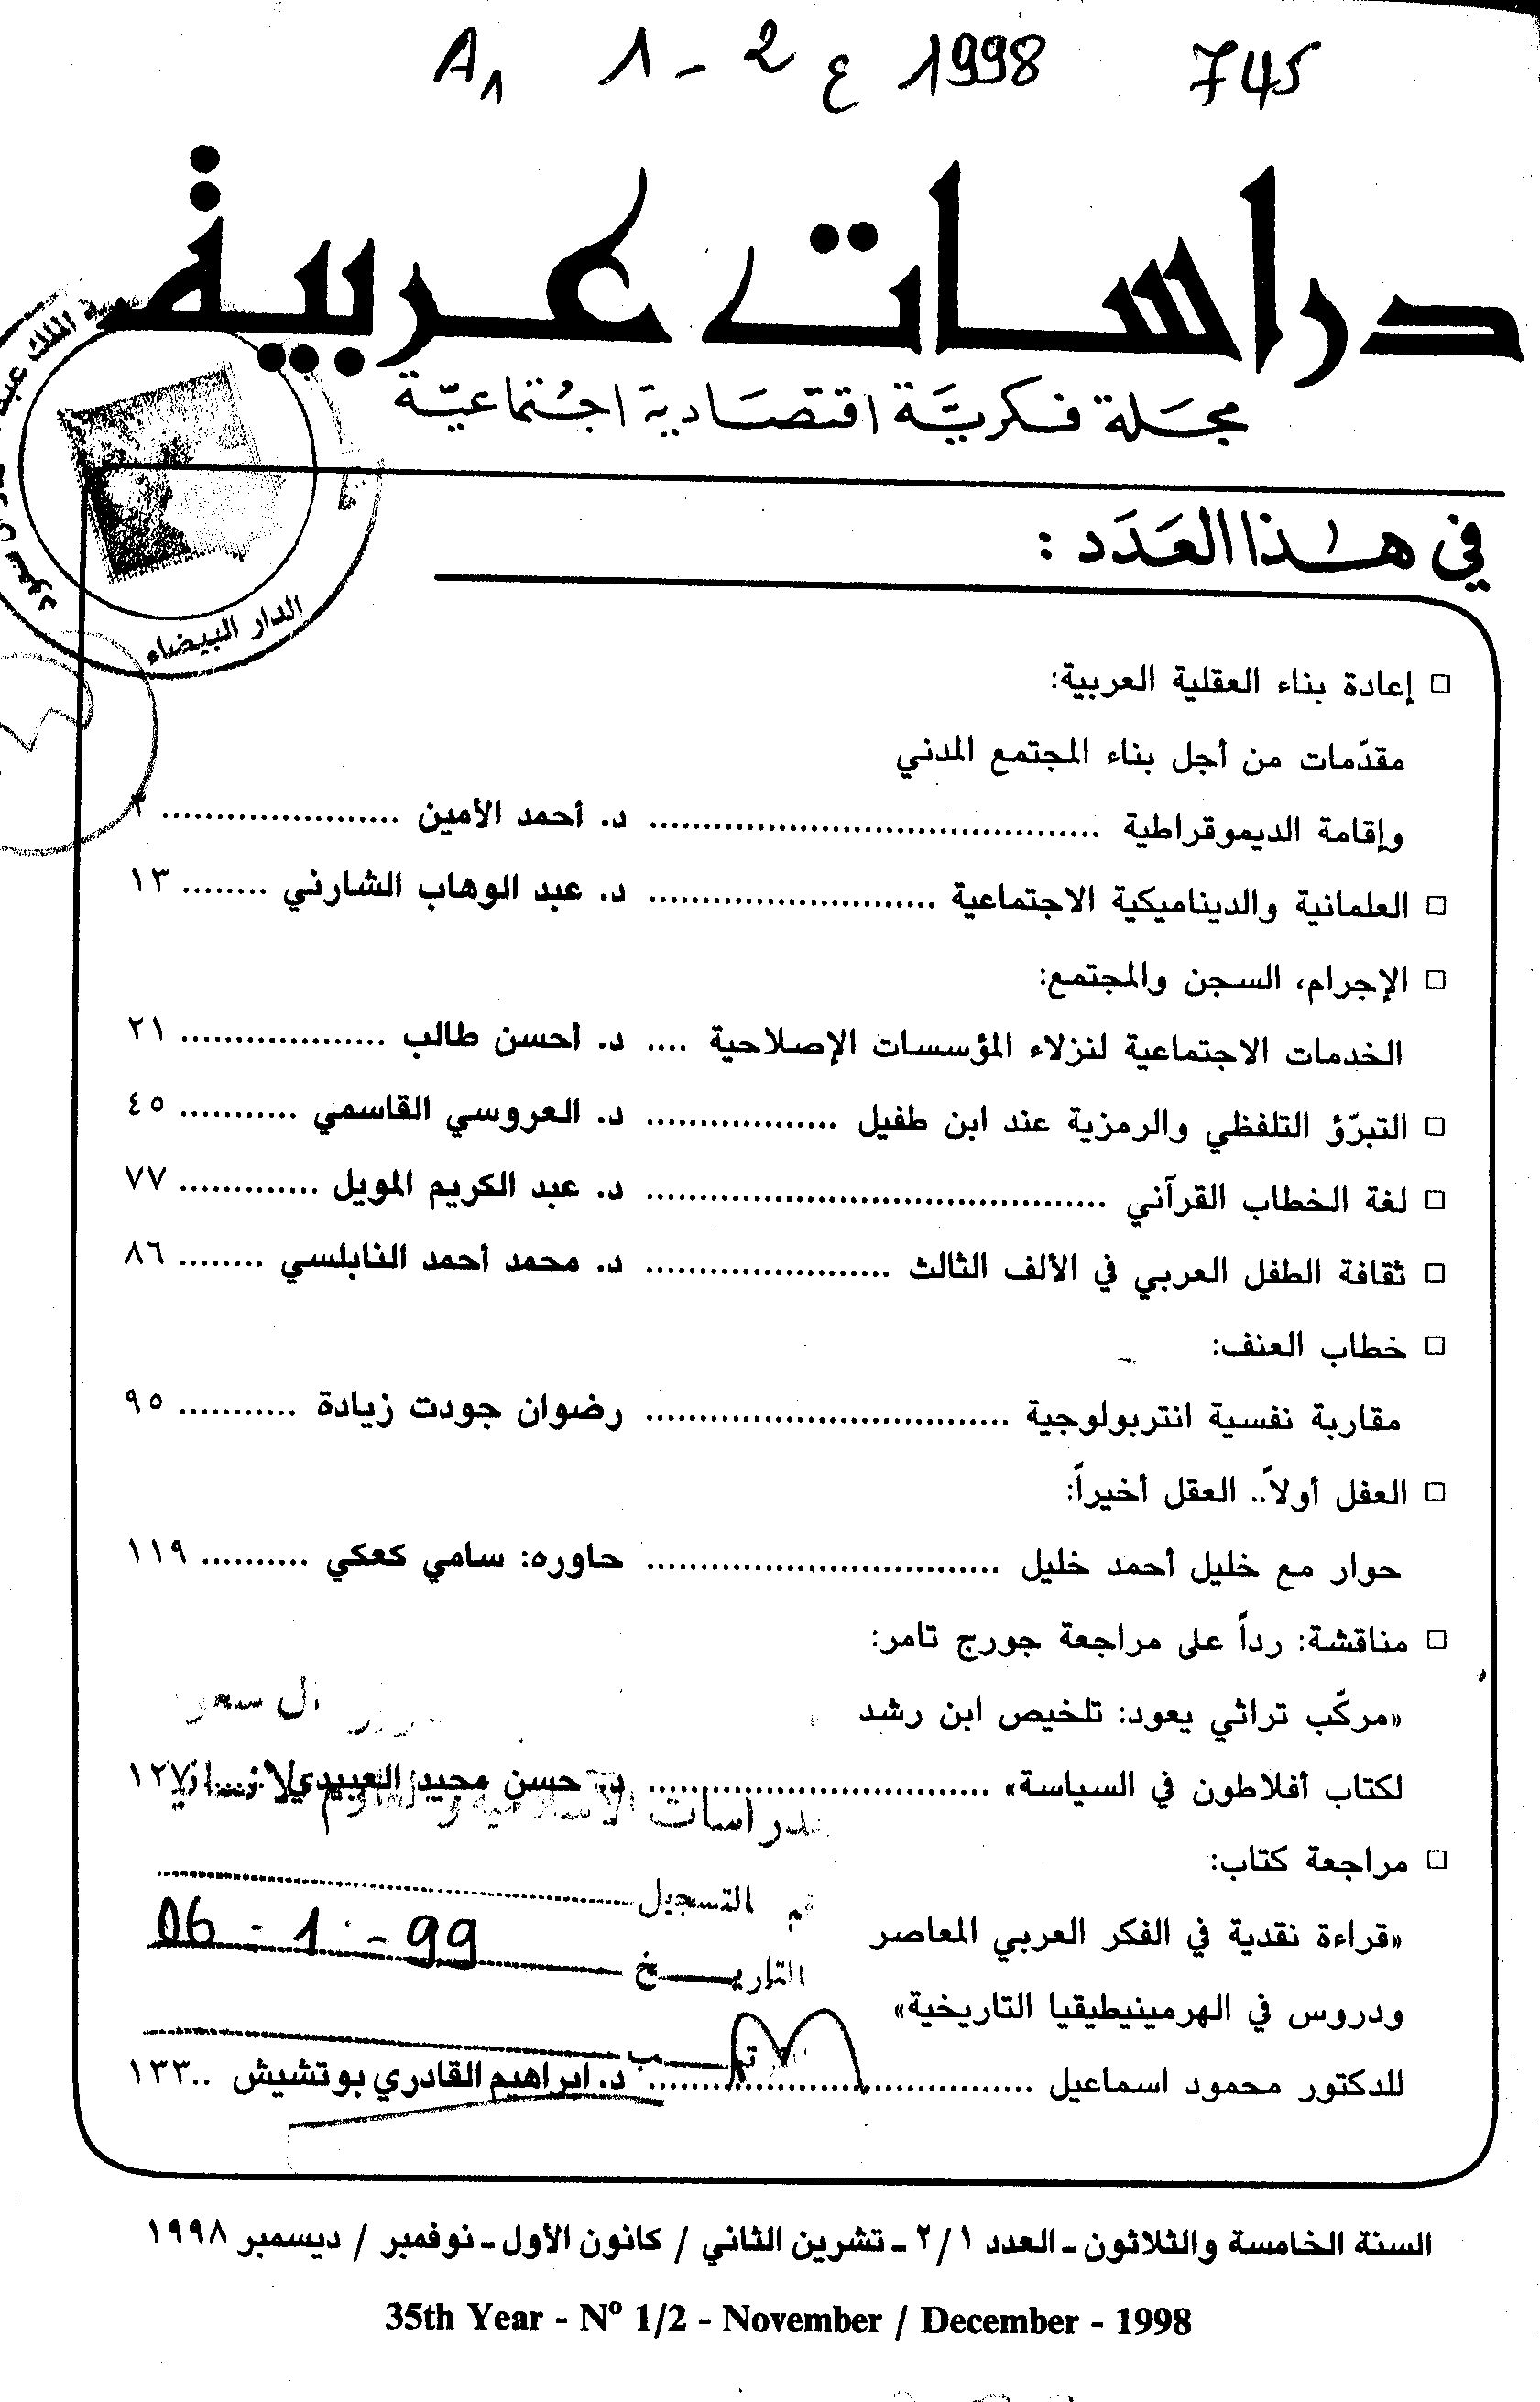 A1 1 - 2 ع 1998 745
دراسات عربية
مجلة فكريَّة اقتصَادية اجتماعيّة
الملك عبد
الدار البيضاء
في هذا العَدَد :
□ إعادة بناء العقلية العربية:
مقدّمات من أجل بناء المجتمع المدني
وإقامة الديموقراطية ........ د. أحمد الأمين ........
□ العلمانية والديناميكية الاجتماعية ........ د. عبد الوهاب الشارني ........ ١٣
□ الإجرام، السجن والمجتمع:
الخدمات الاجتماعية لنزلاء المؤسسات الإصلاحية .... د. أحسن طالب ........ ٢١
□ التبرّؤ التلفظي والرمزية عند ابن طفيل ........ د. العروسي القاسمي ........ ٤٥
□ لغة الخطاب القرآني ........ د. عبد الكريم المويل ........ ٧٧
□ ثقافة الطفل العربي في الألف الثالث ........ د. محمد أحمد النابلسي ........ ٨٦
□ خطاب العنف:
مقاربة نفسية انتربولوجية ........ رضوان جودت زيادة ........ ٩٥
□ العفل أولاً.. العقل أخيراً:
حوار مع خليل أحمد خليل ........ حاوره: سامي كعكي ........ ١١٩
□ مناقشة: رداً على مراجعة جورج تامر:
«مركّب تراثي يعود: تلخيص ابن رشد
ال سعو
لكتاب أفلاطون في السياسة» ........ د. حسن مجيد العبيدي ........ ١٢٧
□ مراجعة كتاب:
التسجيل
«قراءة نقدية في الفكر العربي المعاصر
التاريخ 06 - 1 - 99
ودروس في الهرمينيطيقيا التاريخية»
للدكتور محمود اسماعيل ........ د. ابراهيم القادري بوتشيش .. ١٣٣
السنة الخامسة والثلاثون ـ العدد ٢/١ ـ تشرين الثاني / كانون الأول ـ نوفمبر / ديسمبر ١٩٩٨
35th Year - Nº 1/2 - November / December - 1998